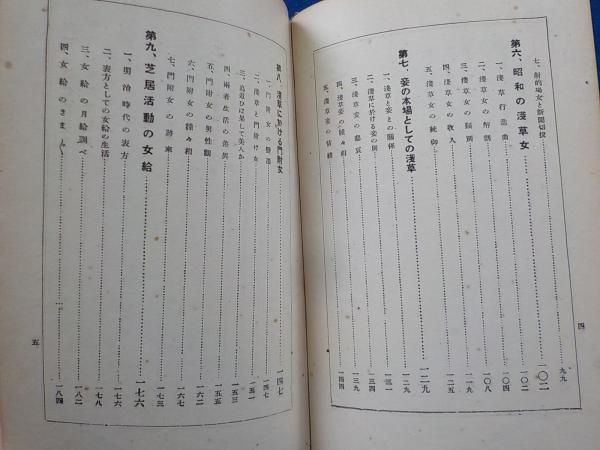 七、射的場女と新聞切拔………九九
第六、昭和の淺草女………一〇二
一、淺草行進曲………一〇二
二、淺草女の解剖………一〇四
三、淺草女の類別………一〇八
四、淺草女の收入………一一九
五、淺草女の統御………一二五
第七、妾の本場としての淺草………一二九
一、淺草と妾との關係………一二九
二、淺草に於ける妾の別………一三一
三、淺草妾の悲哀………一三四
四、淺草妾の種々相………一三九
五、淺草妾の情緒………一四四
四
第八、淺草に於ける門附女………一四七
一、門附女の
二、淺草と門附け女………一五一
三、鳥追ひは果して美人か………一五三
四、兩者生活の差異………一五五
五、門附女の男性觀………一六二
六、門附女の種々相………一六七
七、門附女の
第九、芝居活動の女給………一七六
一、明治時代の表方………一七六
二、表方としての女給の生活………一七八
三、女給の月給調べ………一八二
四、女給のさま〴〵………一八四
五